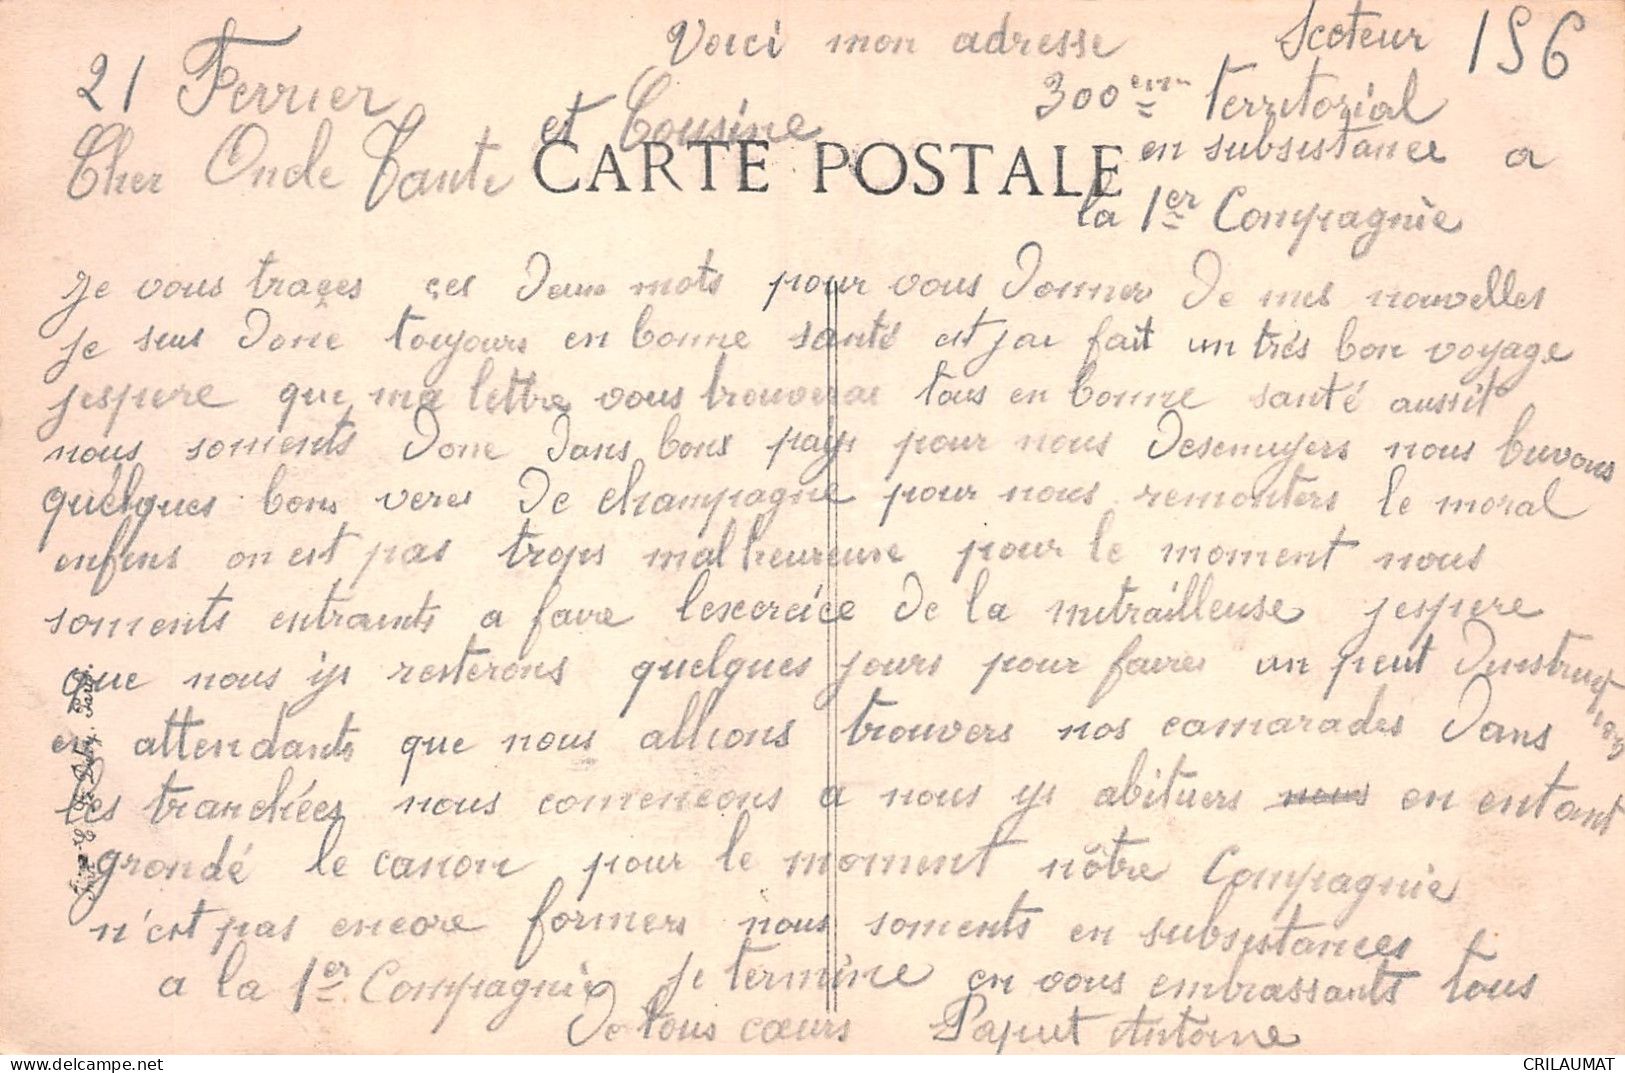 21 Fevrier
Voici mon adresse Scoteur 156
300eme Territorial
en subsistance a
la 1er Compagnie
Cher Oncle Tante et Cousine
CARTE POSTALE
je vous traces ces deux mots pour vous donner de mes nouvelles
je suis donc toujours en bonne santé et jai fait un très bon voyage
jespere que ma lettre vous trouveras tous en bonne santé aussit
nous soments donc dans bons pays pour nous desennuyers nous buvons
quélques bons veres de champagne pour nous remonters le moral
enfins on est pas trops malheureuse pour le moment nous
soments entraints a faire lexercice de la mitrailleuse jespere
que nous ys resterons quelques jours pour faires un peut dinstruction
en attendants que nous allions trouvers nos camarades dans
les tranchées nous comencons a nous ys abituers nous en entant
grondé le canon pour le moment nôtre Compagnie
n'est pas encore formers nous soments en subsistances
a la 1er Compagnie je termine en vous embrassants tous
de tous cœurs Paput Antoine
CRILAUMAT